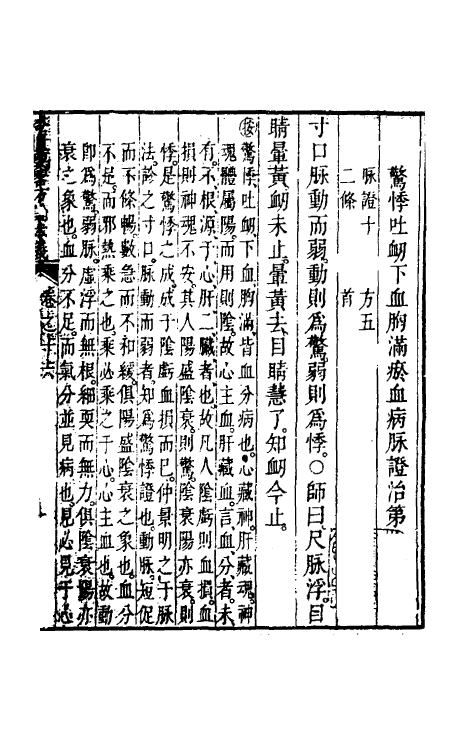 驚悸吐衂下血胸滿瘀血病脉證治第
脉證十二條
方五首
寸口脉動而弱。動則爲驚。弱則爲悸。○師曰。尺脉浮。目
睛暈黃。衂未止。暈黃去。目睛慧了。知衂今止。
按驚悸。吐衂。下血。胸滿。皆血分病也。心藏神。肝藏魂。神
魂體屬陽。而用則陰。故心主血。肝藏血。言血分者。未
有不根源于心肝二臟者也。故凡人陰虧則血損。血
損則神魂不安。其人陽盛陰衰。則驚。陰衰陽亦衰。則
悸。是驚悸之成。成于陰虧血損而已。仲景明之于脉
法。診之寸口。脉動而弱者。知爲驚悸證也。動脉。短促
而不條暢。數急而不和緩。俱陽盛陰衰之象也。血分
不足。而邪熱乘之也。乘必乘之于心。心主血也。故動
卽爲驚。弱脉。虛浮而無根。細耎而無力。俱陰衰陽亦
衰之象也。血分不足。而氣分並見病也。見必見于心